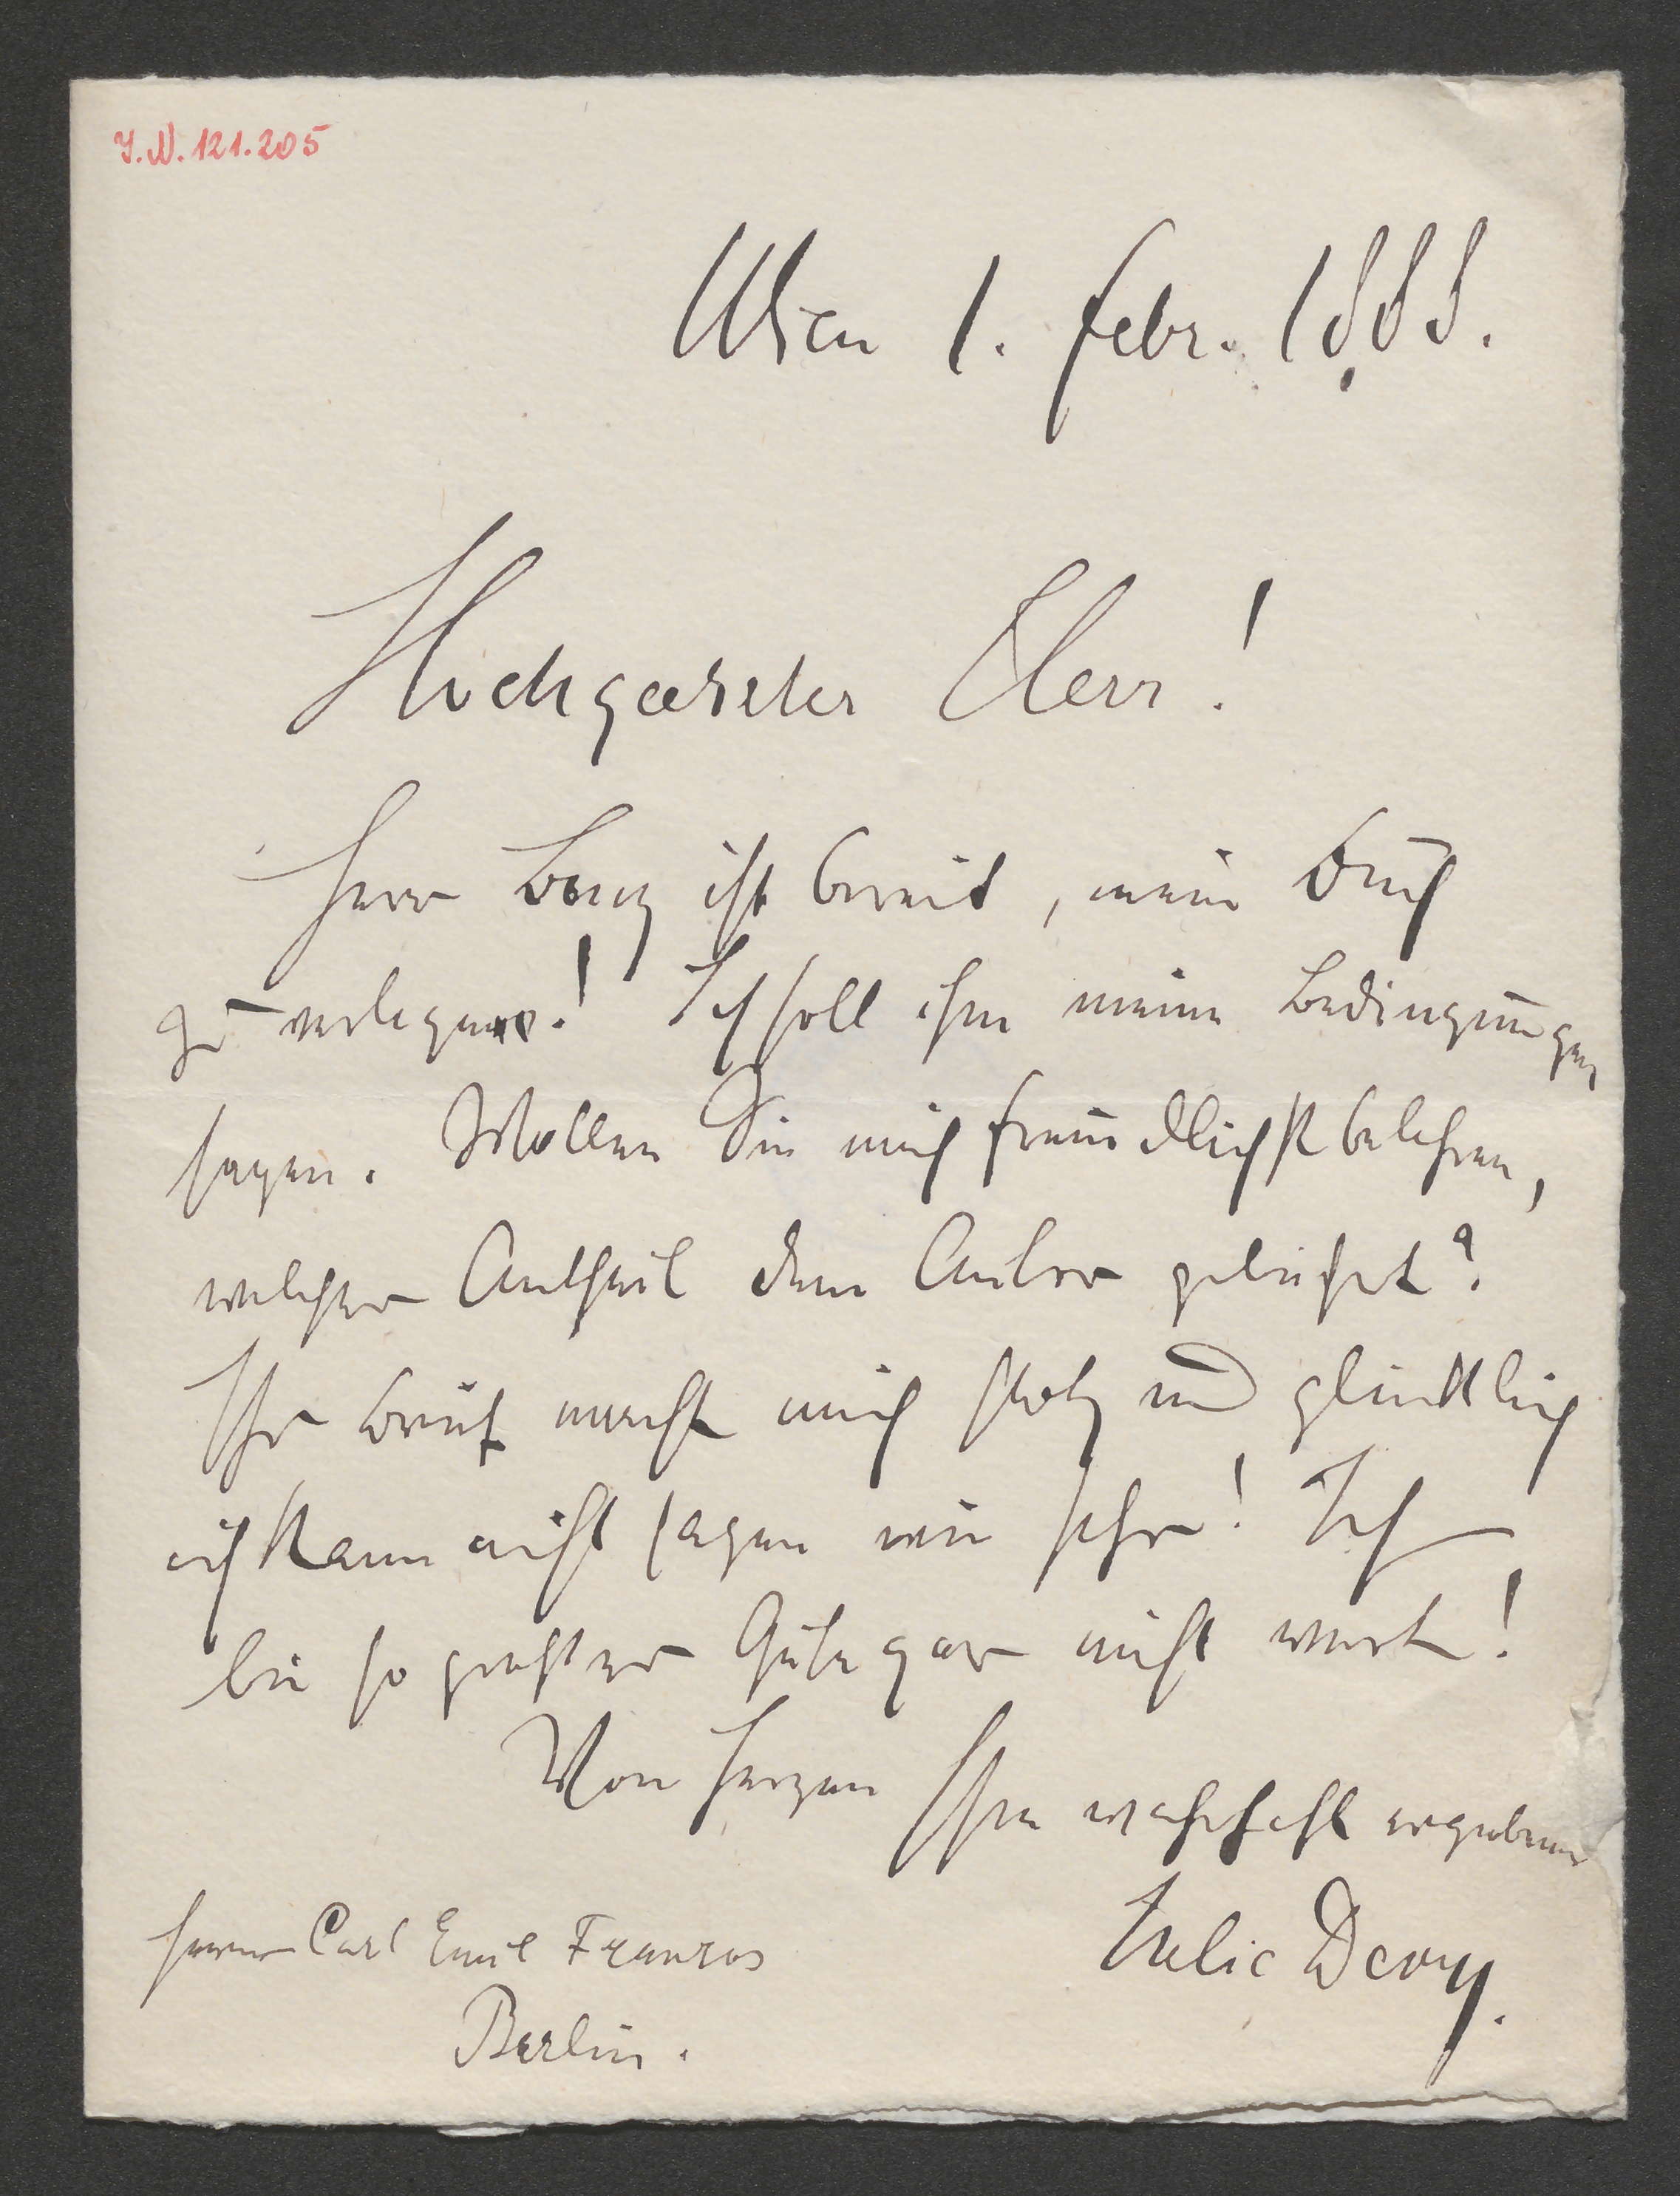 I.N. 121.205
Wien 1. Febr. 1888.
Hochgeehrter Herr!
Herr Bonz ist bereit, mein Buch
zu verlegen! Ich soll ihm meine Bedingungen
sagen. Wollen Sie mich freundlichst belehren,
welcher Antheil dem Autor gebührt?
Ihr Brief macht mich stolz und glücklich
ich kann nicht sagen wie sehr! Ich
bin so großer Güte gar nicht wert!
Von Herzen Ihre wahrhaft ergebene
Julie Dery.
Herrn Carl Emil Franzos
Berlin.